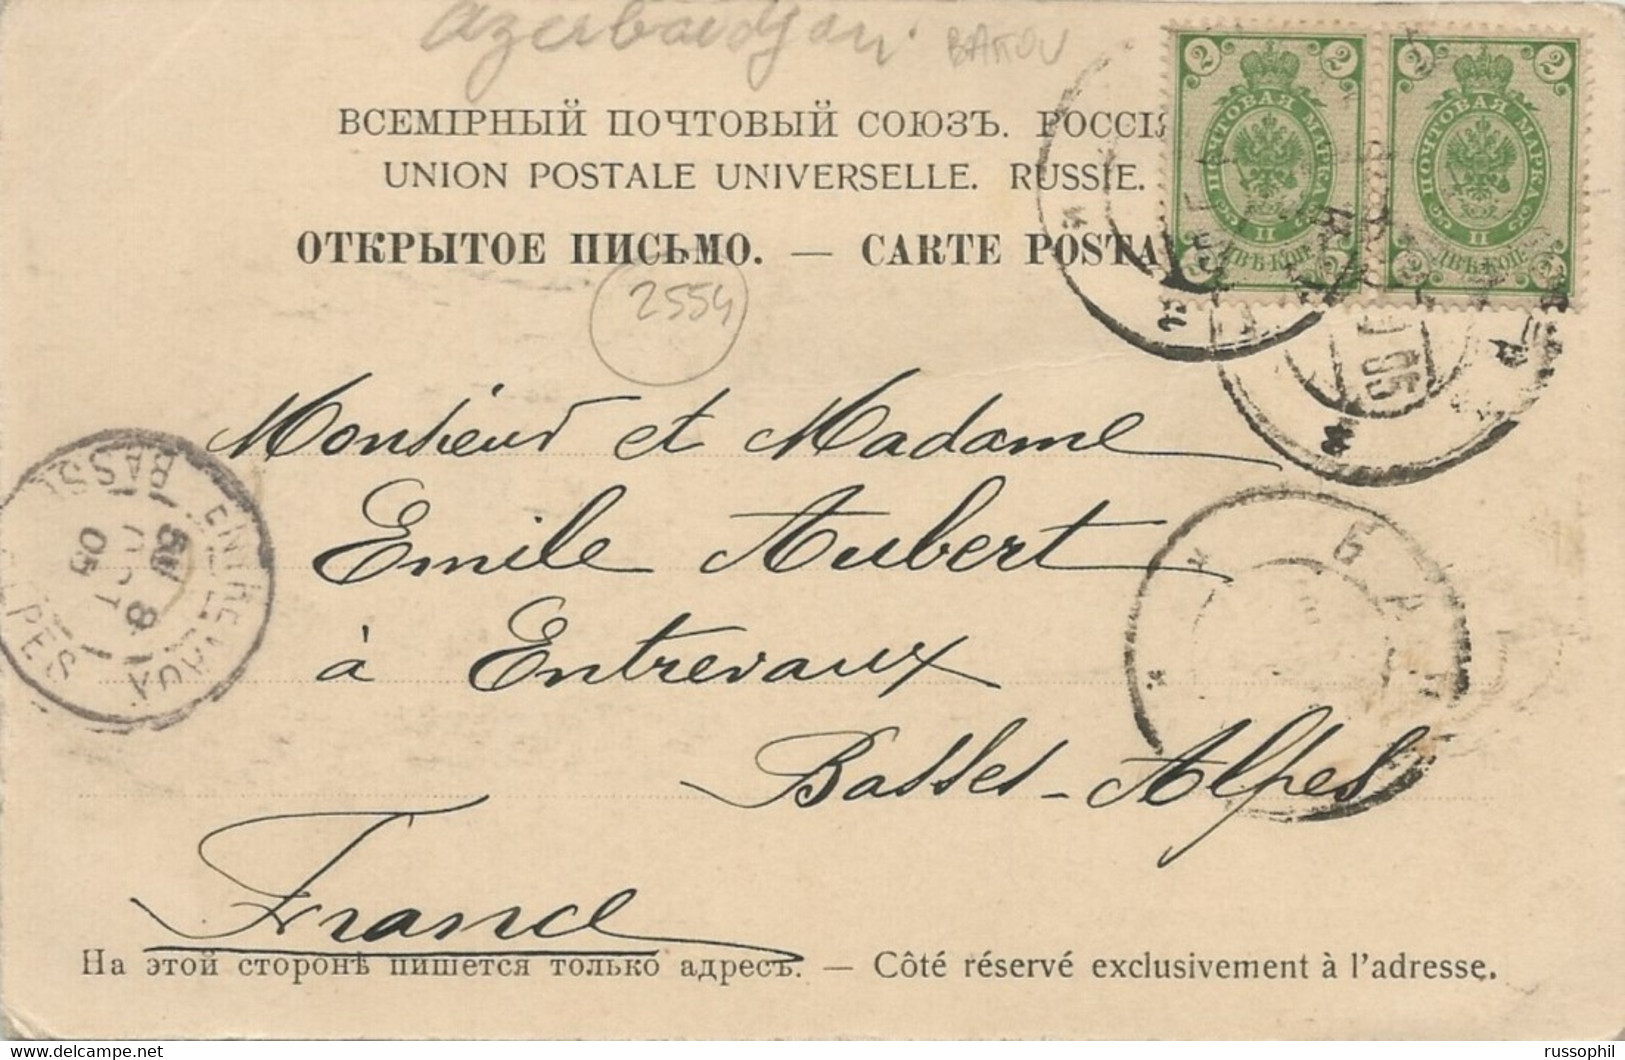 Azerbaïdjan. BAKOU
ВСЕМІРНЫЙ ПОЧТОВЫЙ СОЮЗЪ. РОССІЯ
UNION POSTALE UNIVERSELLE. RUSSIE.
ОТКРЫТОЕ ПИСЬМО. — CARTE POSTA
2 2
ПОЧТОВАЯ МАРКА
ДВѢ КОП.
2 2
ПОЧТОВАЯ МАРКА
ДВѢ КОП.
05
2554
Monsieur et Madame
Emile Aubert
à Entrevaux
Basses-Alpes
France
ENTREVAUX
8 OCT 05
БАК
На этой сторонѣ пишется только адресъ. — Côté réservé exclusivement à l'adresse.
russophil